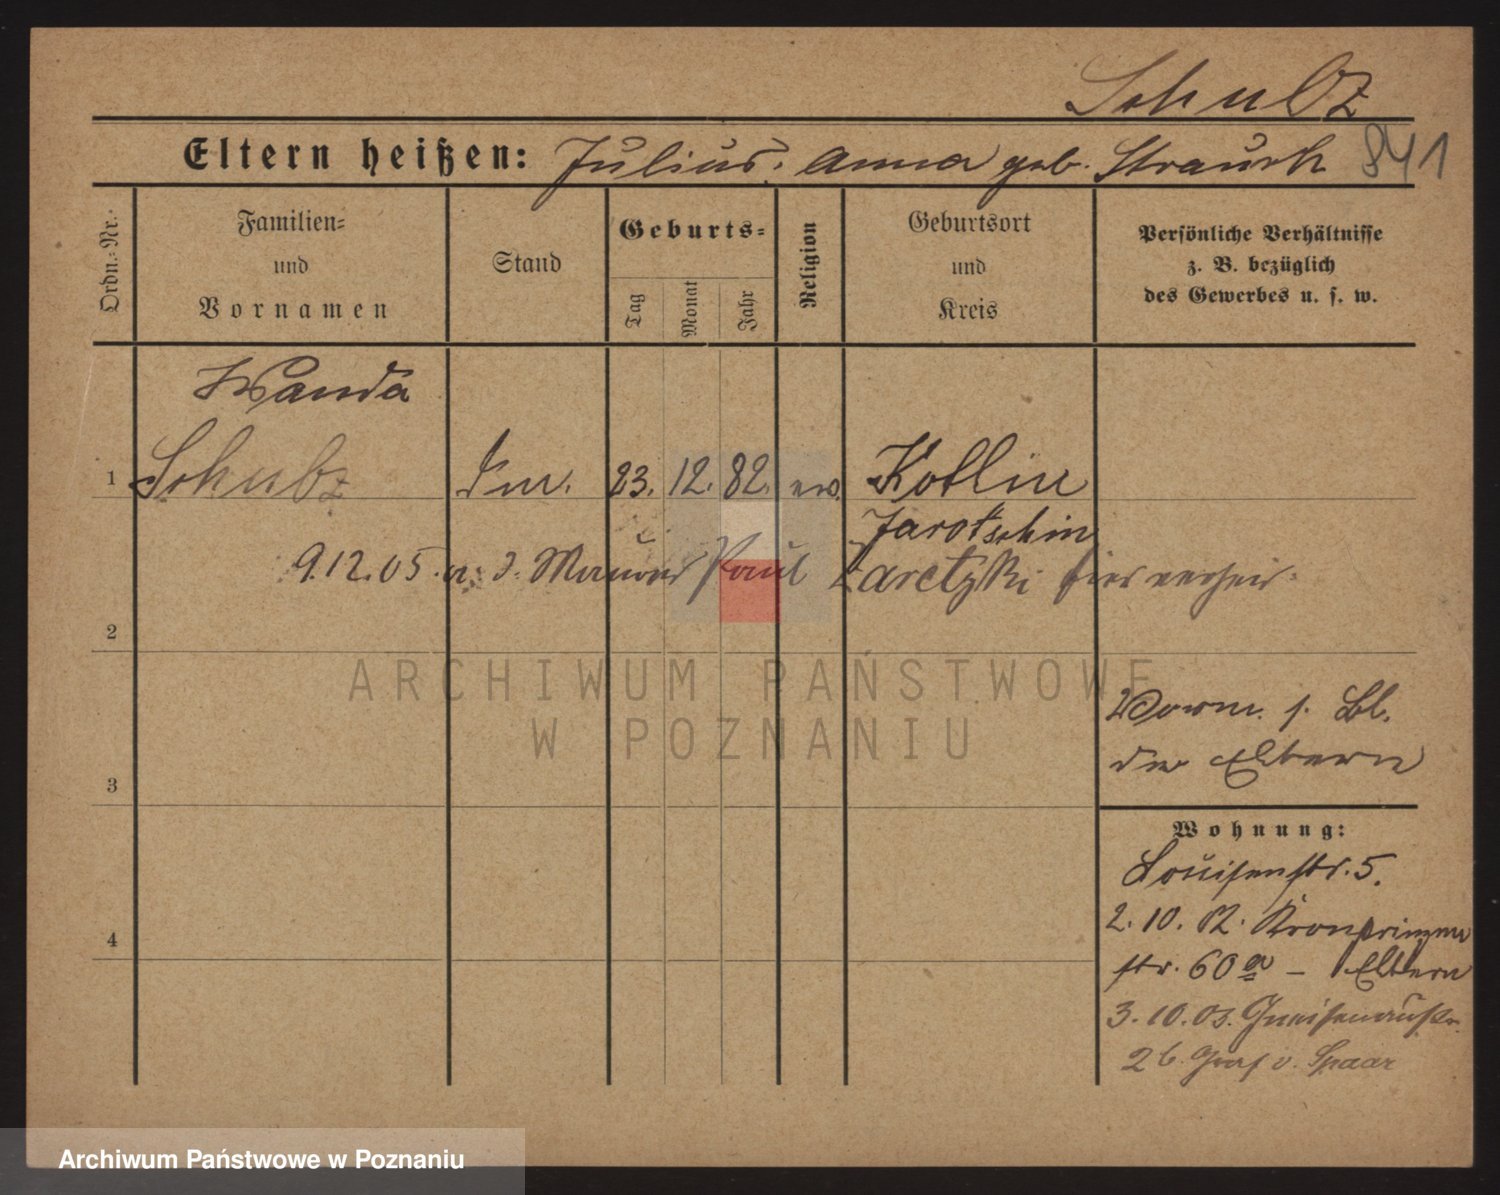 Schulz
Eltern heißen: Julius, Anna geb. Strauch 841
Ordn.-Nr.
Familien-
und
Vornamen
Stand
Geburts-
Tag
Monat
Jahr
Religion
Geburtsort
und
Kreis
Persönliche Verhältnisse
z. B. bezüglich
des Gewerbes u. s. w.
Wanda
1 Schulz 23. 12. 82. ev. Kotlin
Jarotschin
9.12.05. a. d. Maurer Paul Zaretzki hier verheir.
2
ARCHIWUM PAŃSTWOWE
W POZNANIU
Vorm. s. Bl.
der Eltern
3
Wohnung:
Louisenstr. 5.
2. 10. 02. Kronprinzen
str. 60 a – Eltern
4
3. 10. 03. Gneisenaustr.
2b. Graf v. Spaar
Archiwum Państwowe w Poznaniu